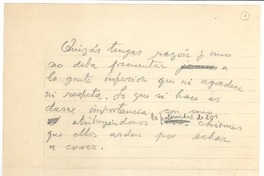 Quizás tengas razón, y uno
no deba frecuentar a
la gente inferior que ni agradece
ni respeta. Lo que sí hace es
darse importancia con uno
atribuyéndonos la de los chismes
que ellos arden por echar
a correr.